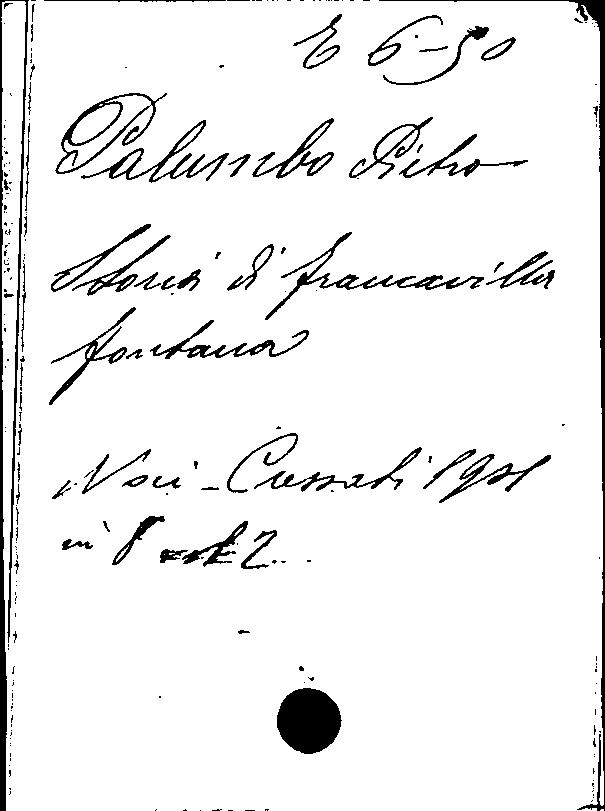 E 6-50
Palumbo Pietro
Storia di francavilla
fontana
Noci - Cressati 1901
in 8 vol. 2